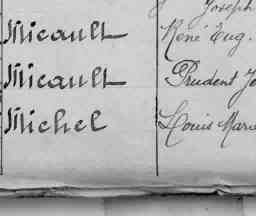 Joseph
Micault René Eug.
Micault Prudent Jo
Michel Louis Marie